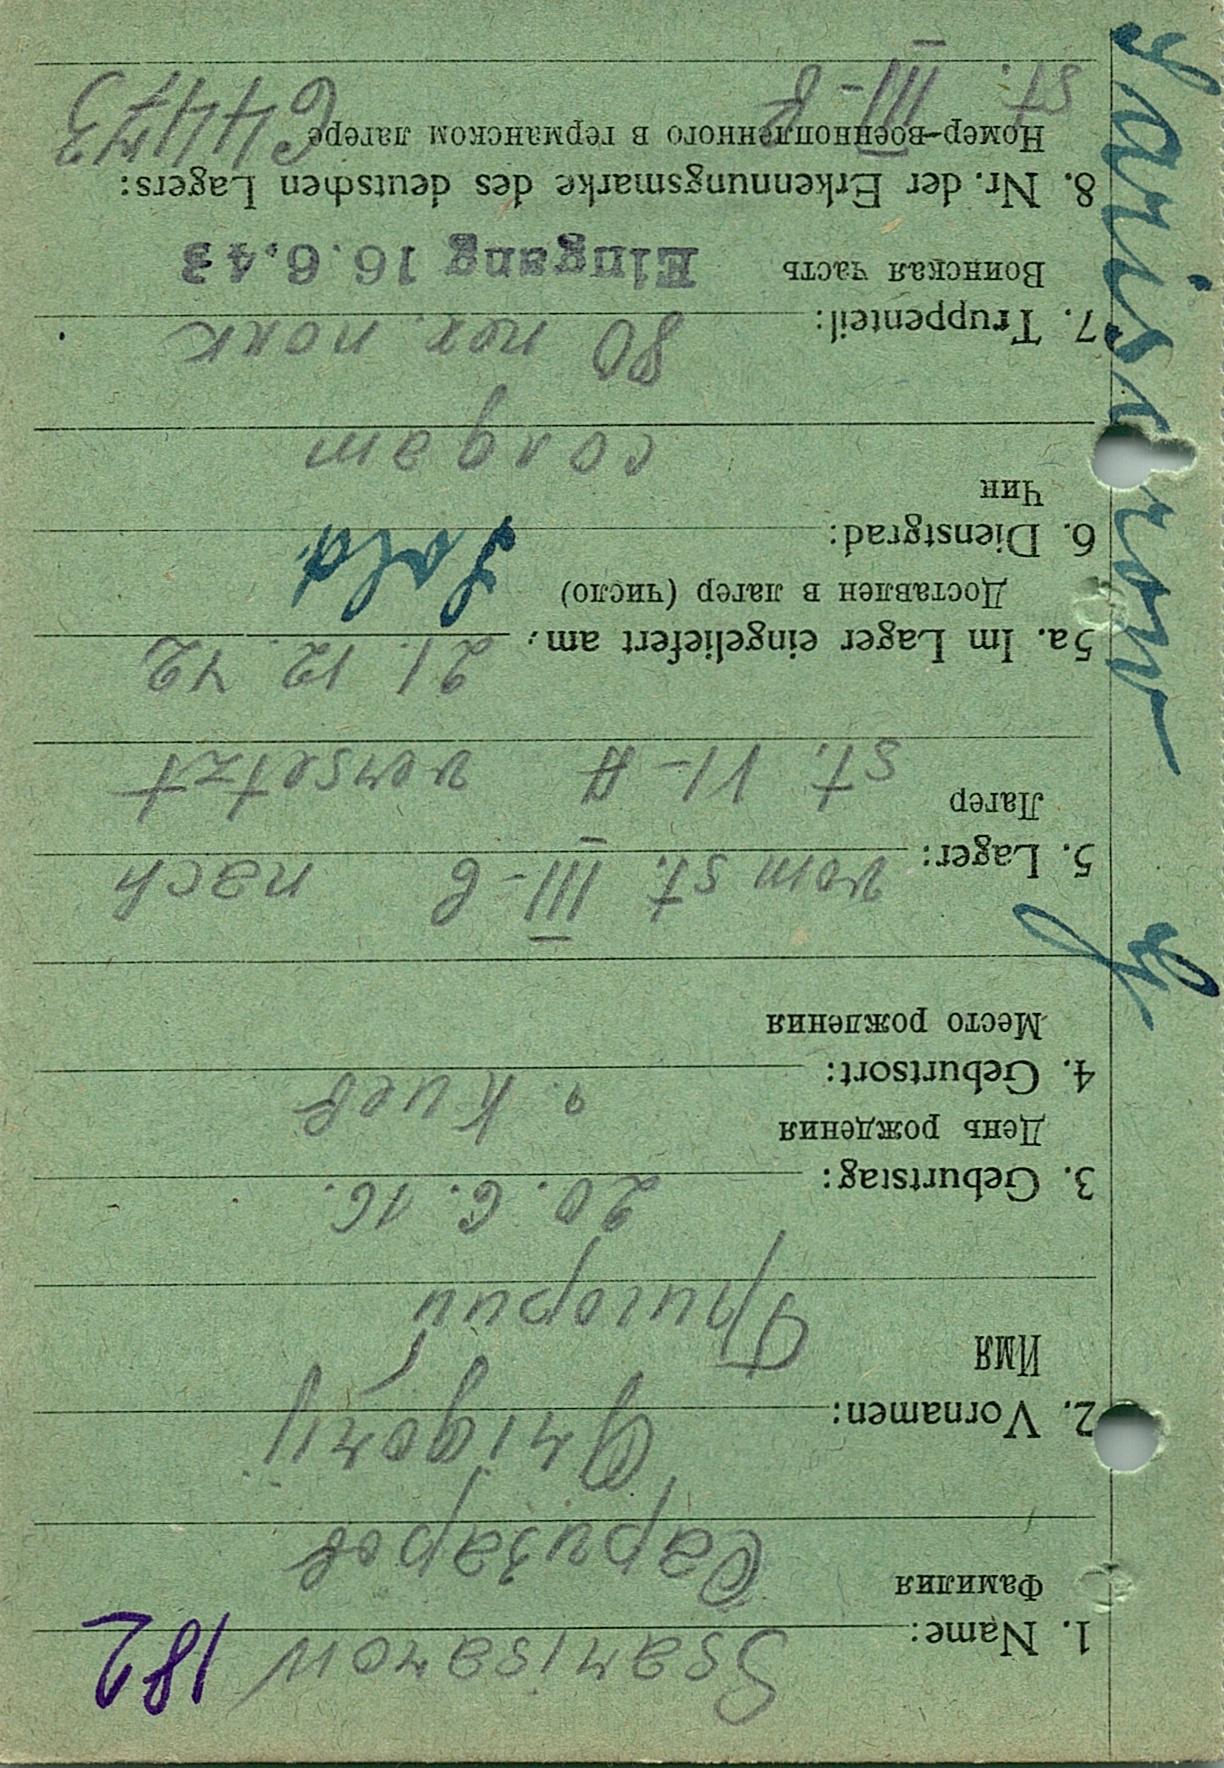 182
1. Name: Ssarisarow
Фамилия Саризаров
2. Vornamen: Grigorij
Имя Григорий
3. Geburtstag: 20. 6. 16.
День рождения
4. Geburtsort: г. Киев
Место рождения
5. Lager: vom st. III-B nach
Лагер st. VI-A versetzt
5a. Im Lager eingeliefert am: 21. 12. 42
Доставлен в лагер (число)
6. Dienstgrad: Sold.
Чин солдат
7. Truppenteil: 80 пех. полк
Воинская часть Eingang 16.6.43
8. Nr. der Erkennungsmarke des deutschen Lagers:
Номер-военнопленного в германском лагере
st. III-B 64473